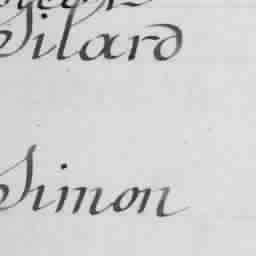 Silard
Simon